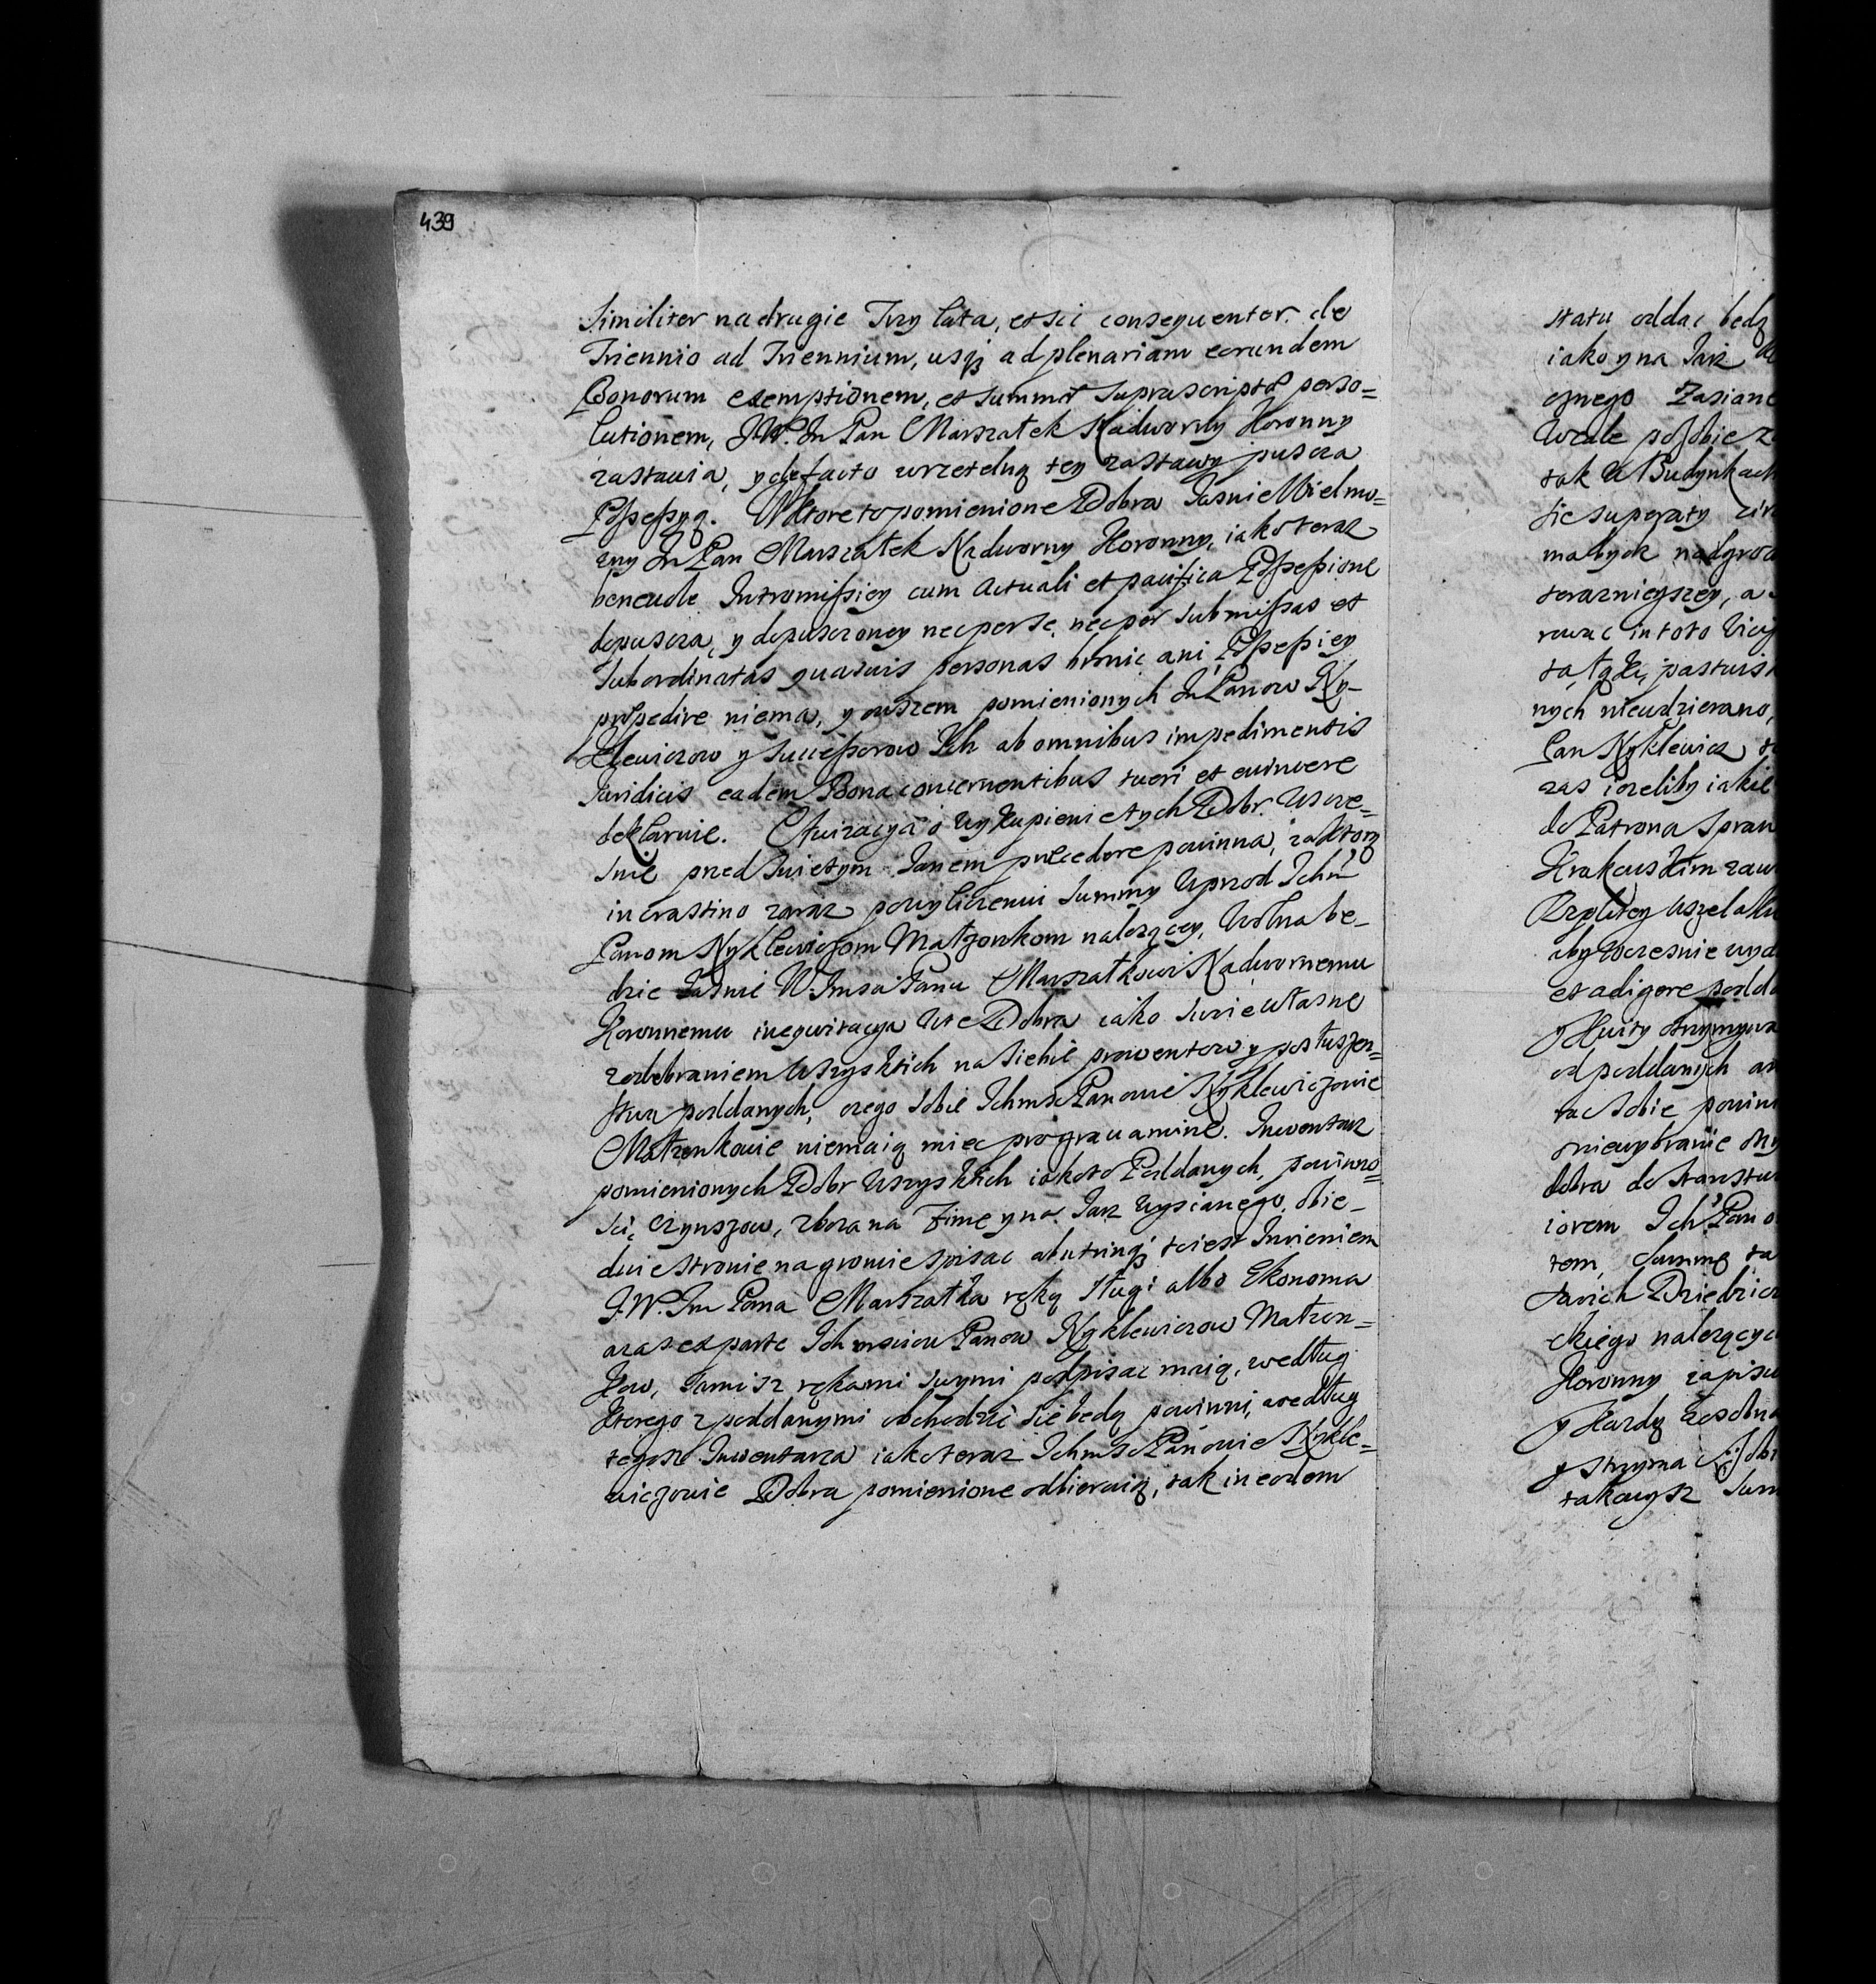 439
Similiter na drugie Trzy lata, et sic consequenter de
Triennio ad Triennium, usq3 ad plenariam eorundem
Bonorum exemptionem, et summæ supra scriptæ perso=
lutionem, J.W. Jm Pan Marszałek Nadworny Koronny
zastawia, y de facto wrzetelną tey zastawy puscza
Possessyą. Wktore to pomienione Dobra Jasnie Wielmo=
zny Jm Pan Marszałek Nadworny Koronny, iako teraz
beneuole Intromissiey cum actuali et pacifica Possessione
dopuscza, y dopusczoney nec per se, nec per submissas et
Subordinatas quasuis personas bronic ani Possessiey
præpedire niema, y owszem pomienionych Jm Panow Ny-
klewiczow y Successorow Ich ab omnibus impedimentis
Juridicis eadem Bona concernentibus tueri et euincere
deklaruie. Awizacya o wykupienie tych Dobr. Wcze=
snie przed Swietym Janem præcedere powinna, zaktorą
in crastino zaraz powyliczeniu Summy wprzod Ichm
Panom Nyklewiczom Małzonkom nalezącey, Wolna be-
dzie Jasnie W. Jmsci Panu Marszałkowi Nadwornemu
Koronnemu inequitacya w te Dobra iako swoie własne
zodebraniem wszyskich na siebie prowentow y posłuszen=
stwa poddanych, czego sobie Ichmsc Panowie Nyklewiczowie
Małzonkowie niemaią miec pro grauamine. Inwentarz
pomienionych Dobr wszyskich iakoto Poddanych, powinno=
sci, czynszow, zboza na Zime y na Jarz wysianego, obie-
dwie stronie nagroncie spisac ab utrinq3 to iest Imieniem
J.W. Jm Pana Marszałka ręką Sługi albo Ekonoma
a zas ex parte Ichmsciow Panow Nyklewiczow Małzon=
kow, Samisz rękami swymi podpisac maią, według
ktorego zpoddanymi obchodzic sie będą powinni, według
tegosz Inwentarza iako teraz Ichmsc Panowie Nykle=
wiczowie Dobra pomienione odbieraią, tak in eodem
statu oddac będą
iako y na Jarz
Zasiane
Wcale po sobie
tak w Budynkach
sie superaty
małych nadgrod
terazniejszey, a
rowac in toto
pastwisk
nych nieudzierano,
Pan Nyklewicz
zas iezeliby iakie
do Patrona Spraw
Krakowskim
Rzpltey wszelakie
aby wczesnie
et adigere podda
od poddanych
sobie powin
dobra do
iorem Ich Pano
tem, Summę
Dziedzicz
ckiego nalezącyc
Koronny zapisu
y Kazdą zosobna
y strzyma
takowysz Sum